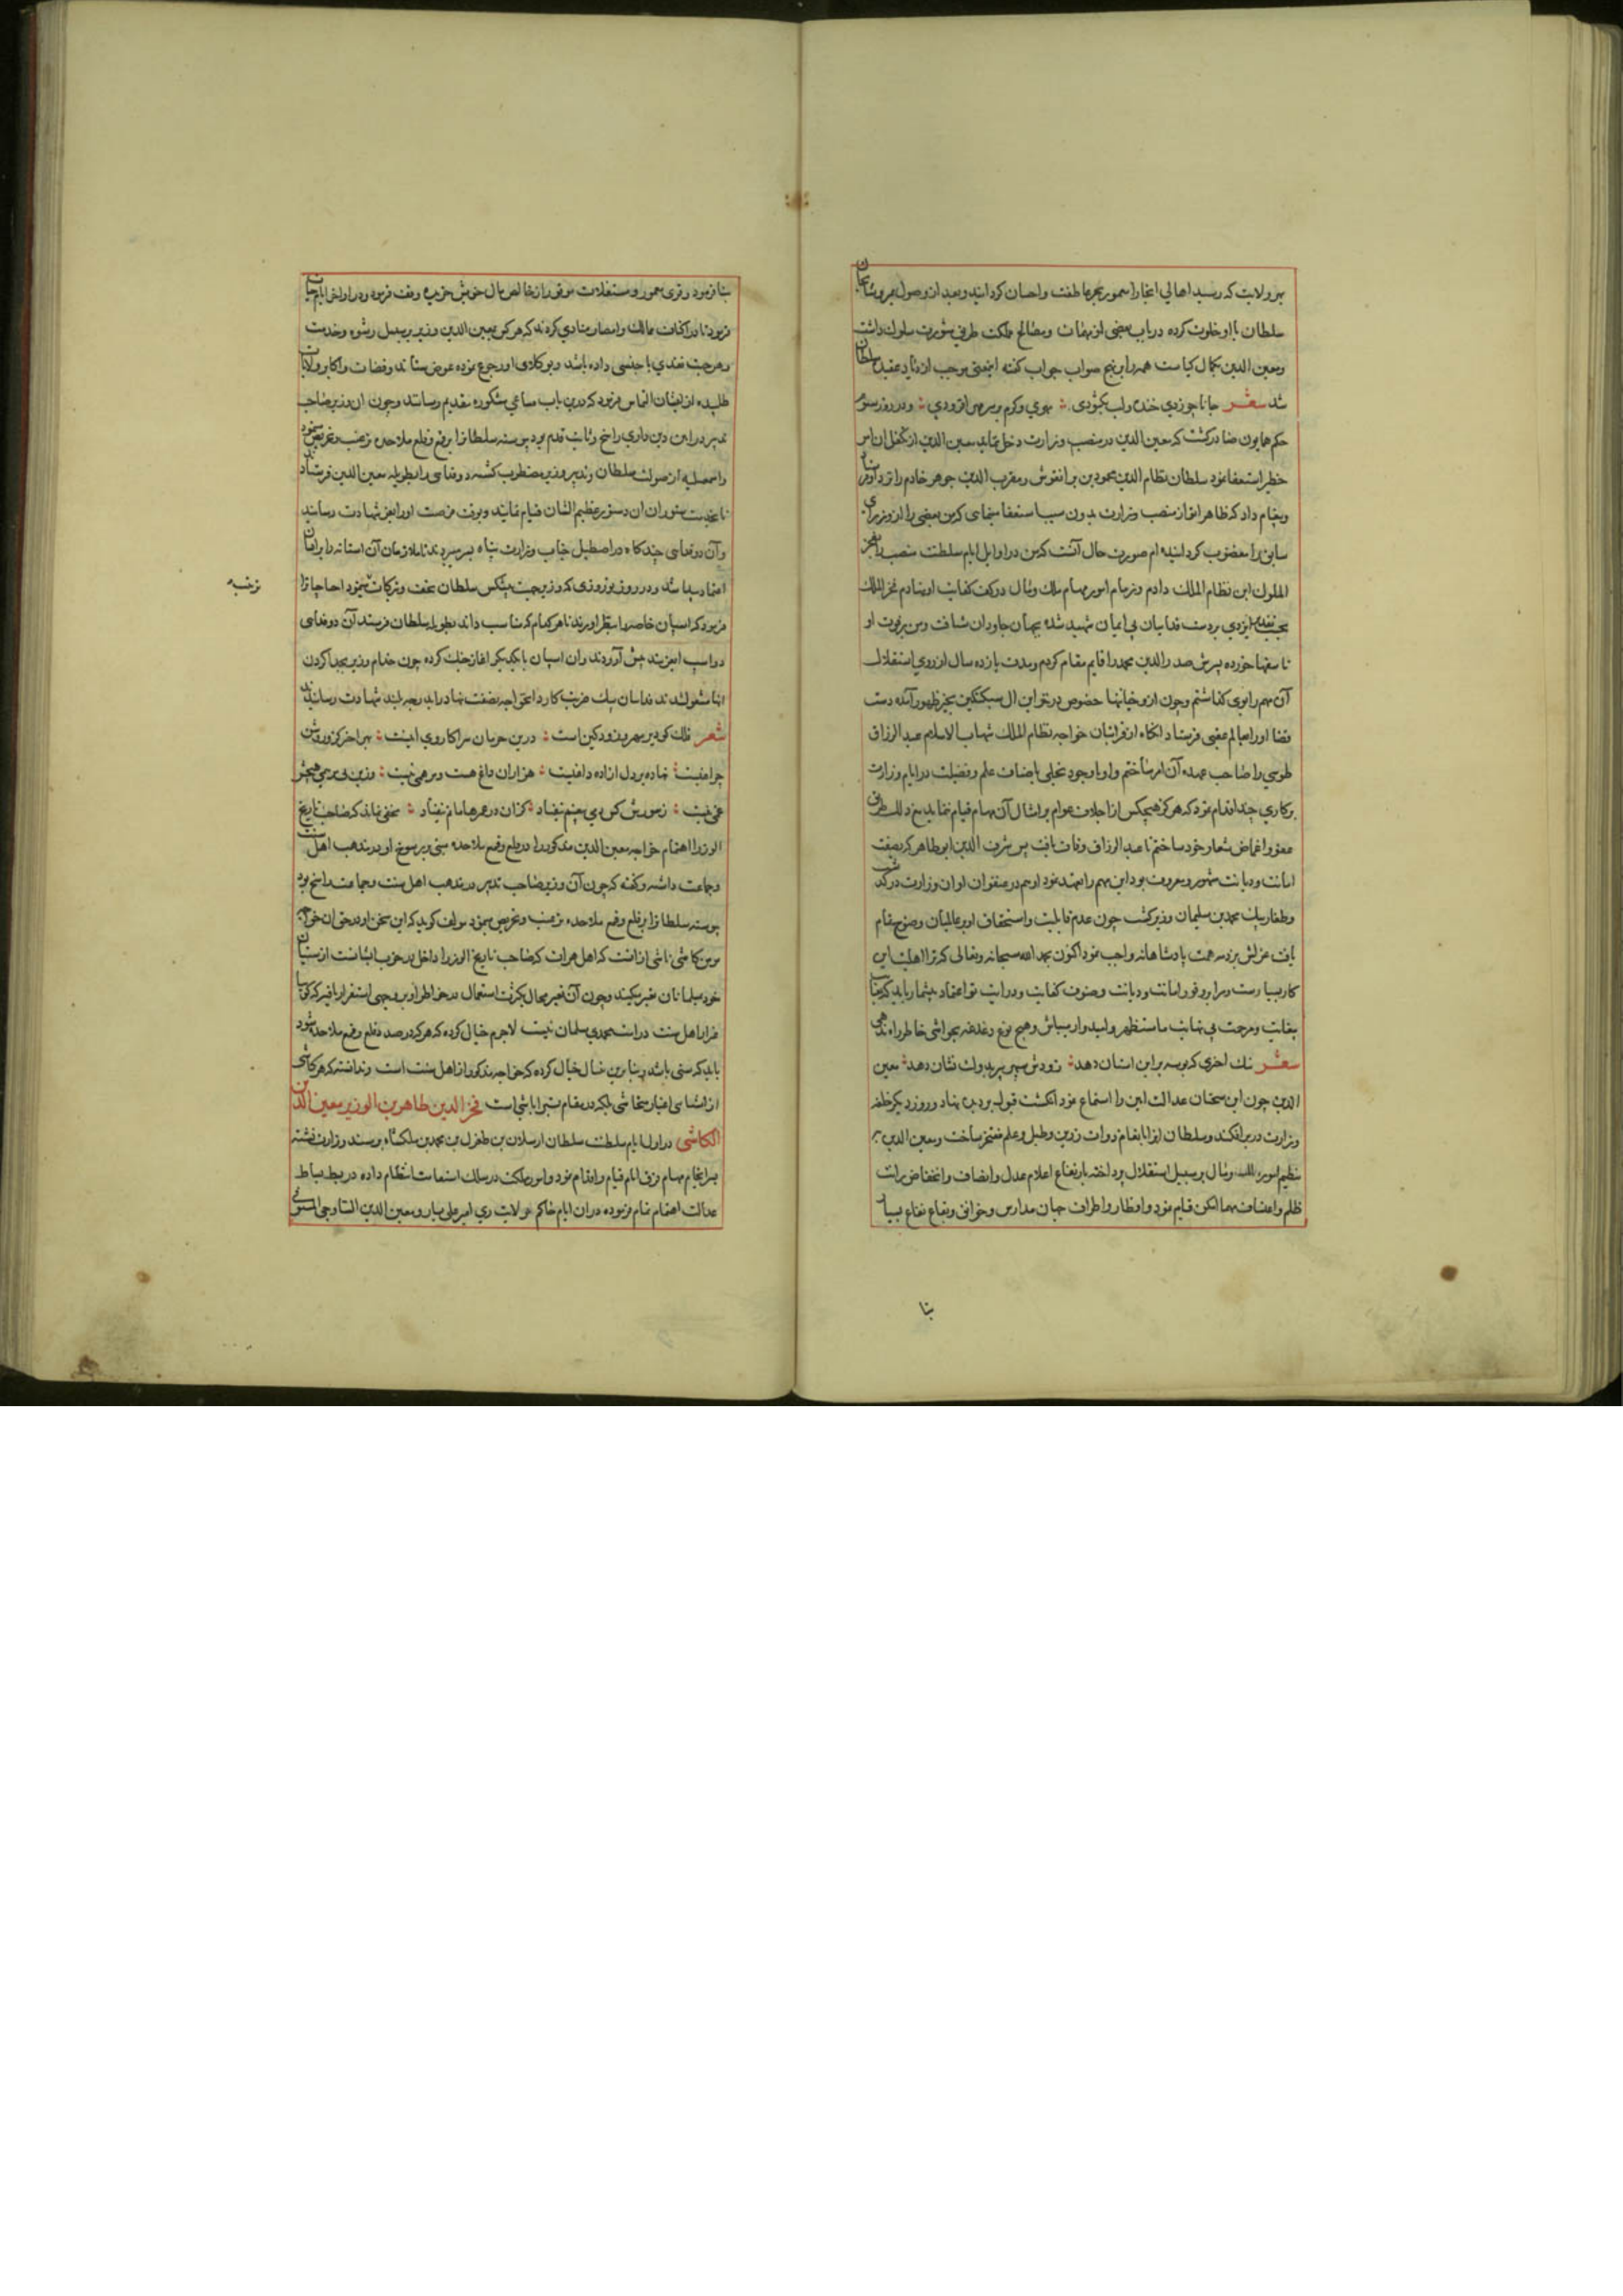 بهر ولایت که رسید اهالی انجا را مغمور بحر عاطفت و احسان کردانید و بعد از وصول بمرو شاهجان
سلطان با او خلوت کرده در باب بعضی از مهمات و مصالح ملکت طریق مشورت سلوک داشت
و معین الدین بکمال کیاست همه را بر نهج صواب جواب کفته اینمعنی موجب ازدیاد عقیده سلطان
شد شعر
حکم همایون صادر کشت که معین الدین در منصب وزارت دخل نماید معین الدین از تکفل ان امر
خطیر استعفا نمود سلطان نظام الدین محمود بن برانقوش و مقرب الدین جوهر خادم را نزد او فرستاد
و پیغام داد که ظاهرا تو از منصب وزارت بدون سبب استعفا مینمایی که من بعضی را از وزرای
سابق را مغضوب کردانیده ام صورت حال آنست که من در اوایل ایام سلطنت منصب را بفخر
الملوک ابن نظام الملک دادم و زمام امور مهام ملک و مال در کف کفایت او نهادم فخر الملک
بحسب تقدیر ایزدی بر دست فداییان بی ایمان شهید شده بجهان جاودان شتافت و من بر فوت او
تاسفها خورده پسرش صدر الدین محمد را قایم مقام کردم و مدت یازده سال از روی استقلال
آن مهم را بوی کذاشتم و چون ازو خیانتها خصوص در خزاین ال سبکتکین بحیز ظهور آمد دست
قضا او را بعالم عقبی فرستاد انکاه از قرابتان خواجه نظام الملک شهاب الاسلام عبد الرزاق
طوسی را صاحب عهده آن امر ساختم و او با وجود تحلی باصناف علم و فضیلت در ایام وزارت
بر کاری چند اقدام نمود که هرکز هیچکس از اجلاف عوام بر امثال آن مهام قیام ننماید مع ذلک طریق
عفو و اغماض شعار خود ساختم تا عبد الرزاق وفات یافت پس شرف الدین ابو طاهر که بصفت
امانت و دیانت مشهور و معروف بود این مهم را متعهد نمود او هم در عنفوان اوان وزارت درکذشت
و طغاربیک محمد بن سلیمان وزیر کشت چون عدم قابلیت و استحقاق او بر عالمیان وضوح تمام
یافت عزلش بر ذمه همت پادشاهانه واجب نمود اکنون بحمد الله سبحانه و تعالی که ترا اهلیت این
کار بسیارست و مرا بر وفور امانت و دیانت و صنوف کفایت و درایت تو اعتماد بیشمار باید که بعنایت
بغایت و مرحمت بی نهایت ما مستظهر و امیدوار باشی و هیچ نوع دغدغه بحواشی خاطر راه ندهی
شعر نیک اختری که بوسه برین استان دهد زودش سپهر پیر بدولت نشان دهد معین
الدین چون این سخنان عدالت ایین را استماع نمود انکشت قبول بر دیده نهاد و روز دیکر خلعه
وزارت در بر افکند و سلطان او را بانعام دوات زرین و طبل و علم مفتخر ساخت و معین الدین به
تنظیم امور ملک و مال بر سبیل استقلال پرداخته بارتفاع اعلام عدل و انصاف و انخفاض رایات
ظلم و اعتساف بهما امکن قیام نمود و در اقطار و اطراف جهان مدارس و خوانق و بقاع نفاع بسیار
بنا
بنا فرمود و قری معمور و مستغلات موفور از خالص مال خویش خریده وقف فرمود و در اواخر ایام حیات
فرمود تا در اکناف ممالک و امصار منادی کردند که هر کس بمعین الدین وزیر بر سبیل رشوه و خدمت
و هر جهت نقدی یا جنسی داده باشد و بوکلای او رجوع نموده عوض ستاند و قضات و اکابر ولایات
طلبیده ازیشان التماس فرمود که درین باب مساعی مشکوره بتقدیم رسانند و چون ان وزیر صاحب
تدبیر در امر دین داری راسخ و ثابت قدم بود پیوسته سلطانرا بر قمع و قلع ملاحده ترغیب و تحریض مینمود
و اسمعیلیه از صولت سلطان و تدبیر وزیر مضطرب کشته دو فدایی را بطویله معین الدین فرستاد
تا بخدمت ستوران ان دستور عظیم الشان قیام نمایند و بوقت فرصت او را بعز شهادت رسانند
و آن دو فدایی چندکاه در اصطبل جناب وزارت پناه بسر میبردند تا ملازمان آن استانه را بر ایشان
اعتماد پیدا شد و در روز نوروزی که وزیر بجهت پیشکش سلطان تحف و تبرکات مینمود احتاجیانرا
فرمود که اسپان خاصه را بنظر اورند تا هر کدام که مناسب داند بطویله سلطان فرستد آن دو فدایی
دو اسپ را پیش آوردند و ان اسپان با یکدیکر اغاز جنک کرده چون خدام وزیر بجدا کردن
انها مشغول شدند فداییان بیک ضربت کارد انخواجه نصفت نهاد را بدرجه بلند شهادت رسانیدند
شعر
مخفی نماند که صاحب تاریخ
الوزرا اهتمام خواجه معین الدین مذکور را در قلع و قمع ملاحده مبنی بر رسوخ او در مذهب اهل سنت
و جماعت داشته و کفته که چون آن وزیر صاحب تدبیر در مذهب اهل سنت و جماعت راسخ بود
پیوسته سلطانرا بر قلع و قمع ملاحده ترغیب و تحریض مینمود مولف کوید که این سخن او در حق ان خواجه
مومن کاشی ناشی از انست که اهل هرات که صاحب تاریخ الوزرا داخل در حزب ایشانست از سنیان
خود بمسلمانان تعبیر میکنند و چون آن تعبیر محال بکثرت استعمال در خواطر او بر وجهی استقرار یافته که کویا
غیر از اهل سنت در امت محمدی مسلمان نیست لاجرم خیال کرده که هر که در صدد قلع و قمع ملاحده شود
باید که سنی باشد و بنا برین خیال کرده که خواجه مذکور از اهل سنت است و ندانسته که هر کاشی
فخر الدین طاهر بن الوزیر معین الدین
الکاشی در اول ایام سلطنت سلطان ارسلان بن طغرل بن محمد بن ملکشاه بر مسند وزارت نشسته
بسرانجام مهام فرق انام قیام و اقدام نمود و امور ملکت در سلک استقامت انتظام داده در بسط بساط
عدالت اهتمام تمام فرموده در ان ایام حاکم ولایت ری امیر علی بار و معین الدین الساوجی المستوفی
ترغیب